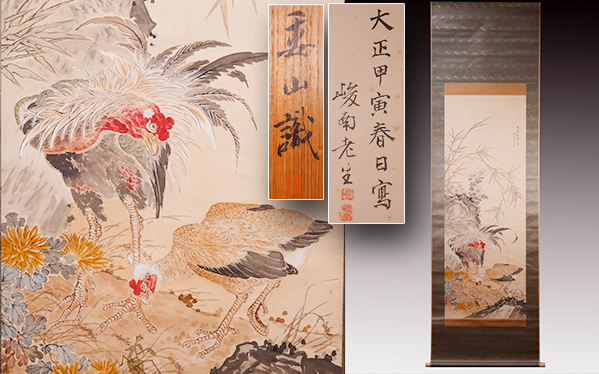 大正甲寅春日寫
峻南老生
山識